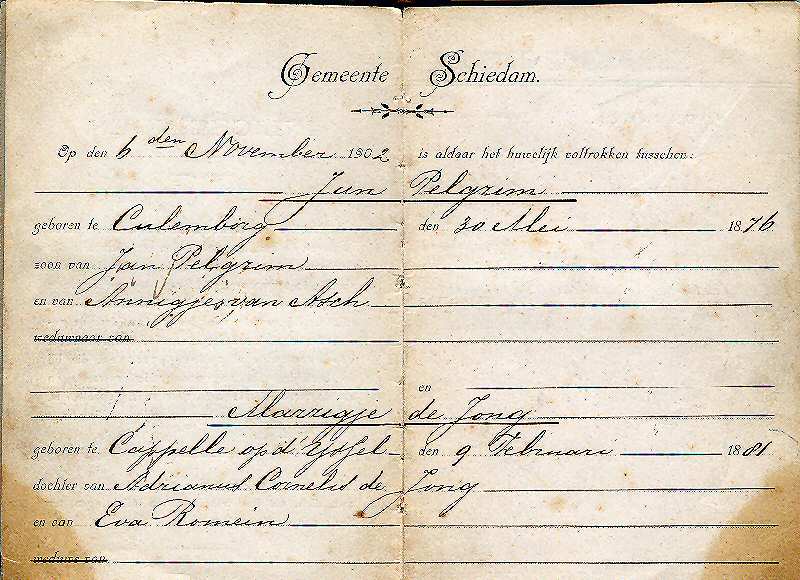 Gemeente Schiedam.
Op den 6 den November 1902 is aldaar het huwelijk voltrokken tusschen:
Jan Pelgrim
geboren te Culemborg den 30 Mei 1876
zoon van Jan Pelgrim
en van Annigje van Asch
weduwnaar van
en
Marrigje de Jong
geboren te Cappelle op d' Yssel den 9 Februari 1881
dochter van Adrianus Cornelis de Jong
en van Eva Romein
weduwe van